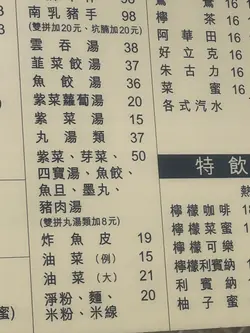 南乳豬手 98
(雙拼加20元、坑腩加20元)
雲吞湯 38
韮菜餃湯 38
魚餃湯 36
紫菜蘿蔔湯 20
紫菜湯 15
丸湯類 37
紫菜、芽菜、 50
四寶湯、魚餃、
魚旦、墨丸、
豬肉湯
(雙拼丸湯類加8元)
炸魚皮 19
油菜(例) 15
油菜(大) 21
淨粉、麵、 20
米粉、米線
檸茶 16
阿華田 16
好立克 16
朱古力 16
菜蜜 16
各式汽水
特飲
熱
檸檬咖啡 18
檸檬菜蜜
檸檬可樂
檸檬利賓納
利賓納
柚子蜜